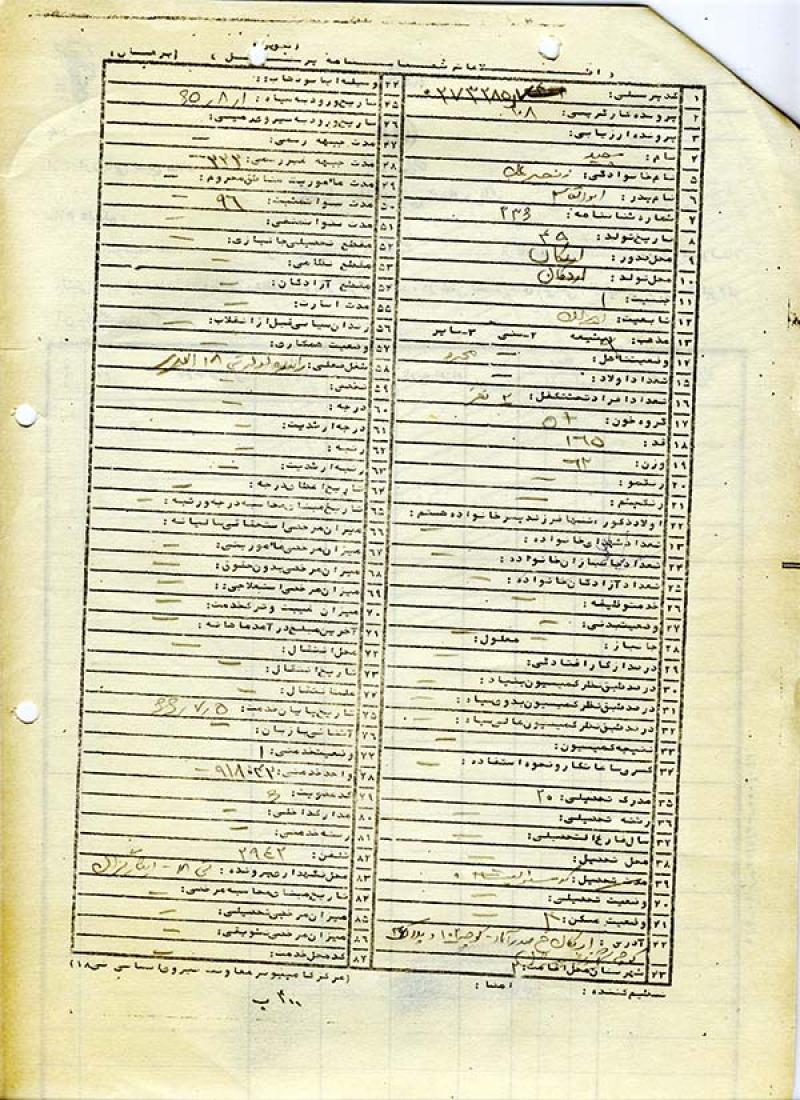 ۱ کد پرسنلی:
۲ پرونده شارگریسی: ۲۰۸
۳ پرونده ارزیابی:
۴ نام: سعید
۵ نام خانوادگی:
۶ نام پدر: ابوالقاسم
۷ شماره شناسنامه: ۲۳۶
۸ تاریخ تولد: ۴۹
۹ محل صدور: اردکان
۱۰ محل تولد: اردکان
۱۱ جنسیت:
۱۲ تابعیت: ایران
۱۳ مذهب: ۱-شیعه ۲-سنی ۳-سایر
۱۴ وضعیت تاهل: مجرد
۱۵ تعداد اولاد: —
۱۶ تعداد افراد تحت تکفل: ۲ نفر
۱۷ گروه خون: +O
۱۸ قد: ۱۶۵
۱۹ وزن: ۶۲
۲۰ رنگ مو: —
۲۱ رنگ چشم: —
۲۲ اولاد ذکور / تنها فرزند پسر خانواده هستم: —
۲۳ تعداد شهدای خانواده:
۲۴ تعداد جانبازان خانواده: —
۲۵ تعداد آزادگان خانواده: —
۲۶ خدمت وظیفه: —
۲۷ وضعیت بدنی: —
۲۸ جانباز: — معلول: —
۲۹ درصد از کار افتادگی:
۳۰ درصد طبق نظر کمیسیون بنیاد: —
۳۱ درصد طبق نظر کمیسیون بدوی سپاه: —
۳۲ درصد طبق نظر کمیسیون عالی سپاه: —
۳۳ نتیجه کمیسیون: —
۳۴ کسری ساعت کار و نحوه استفاده: —
۳۵ مدرک تحصیلی: ۲۰
۳۶ رشته تحصیلی: —
۳۷ سال فارغ التحصیلی: —
۳۸ محل تحصیل: —
۳۹ مدت تحصیل:
۴۰ وضعیت تحصیلی: —
۴۱ وضعیت مسکن: ۳
۴۲ آدرس: اردکان خ صدرآباد - کوچه
۴۳ شهرستان محل اقامت:
۴۴ وسیله ایاب و ذهاب:
۴۵ تاریخ ورود به سپاه: ۶۵/۸/۱
۴۶ تاریخ ورود به نیروی زمینی: —
۴۷ مدت جبهه رسمی: —
۴۸ مدت جبهه غیر رسمی: ۳۲۲
۴۹ مدت ماموریت مناطق محروم: —
۵۰ مدت سنوات مثبت: ۹۶
۵۱ مدت سنوات منفی: —
۵۲ مقطع تحصیلی جانبازی: —
۵۳ مقطع نظامی: —
۵۴ مقطع آزادگان: —
۵۵ مدت اسارت: —
۵۶ زندان سیاسی قبل از انقلاب: —
۵۷ وضعیت همکاری: —
۵۸ شغل فعلی: راننده لودر تی ۱۸ الغدیر
۵۹ تخصص: —
۶۰ درجه: —
۶۱ درجه ارشدیت: —
۶۲ رتبه: —
۶۳ رتبه ارشدیت: —
۶۴ تاریخ اعطای درجه: —
۶۵ تاریخ مبنای محاسبه درجه و رتبه: —
۶۶ میزان مرخصی استحقاقی سالیانه:
۶۷ میزان مرخصی ماموریتی: —
۶۸ میزان مرخصی بدون حقوق: —
۶۹ میزان مرخصی استعلاجی: —
۷۰ میزان غیبت و ترک خدمت: —
۷۱ آخرین مبلغ درآمد ماهانه: —
۷۲ محل انتقال: —
۷۳ تاریخ انتقال: —
۷۴ علت انتقال: —
۷۵ تاریخ پایان خدمت: ۶۶/۷/۵
۷۶ آشنائی با زبان: —
۷۷ وضعیت خدمتی: ۱
۷۸ واحد خدمتی: ۹۱۸۰۴۳
۷۹ کد عضویت: ۶
۸۰ مدارک داخلی: —
۸۱ رسته خدمتی: —
۸۲ تلفن: ۳۹۴۲
۸۳ محل نگهداری پرونده:
۸۴ تاریخ مبنای محاسبه مرخصی: —
۸۵ میزان مرخصی تحصیلی: —
۸۶ میزان مرخصی تشویقی: —
۸۷ کد محل خدمت: —
تنظیم کننده: امضا:
(مرکز کامپیوتر معاونت نیروی انسانی تی ۱۸)
۳۰۰ ب